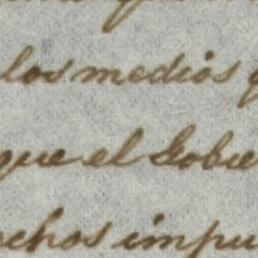 los medios
que el Gobie
chos impu